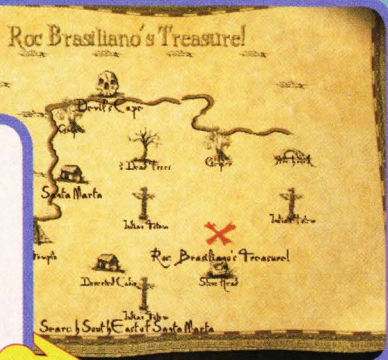 Roc Brasiliano's Treasure!
Devil's Cape
Geyser
Dead Trees
Geyser
Santa Marta
Indian Totem
Indian Totem
Roc Brasiliano's Treasure!
Temple
Deserted Cabin
Stone Head
Indian Totem
Search SouthEast of Santa Marta